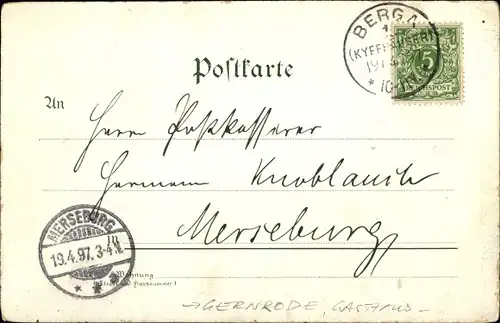 BERGA
(KYFFHÄUSER)
19/4
10-11V
5
REICHSPOST
Postkarte
An
Herrn Postkassierer
Hermann Knoblauch
Merseburg
MERSEBURG
19.4.97. 3-4N.
Wohnung
→ GERNRODE, GASTHAUS-